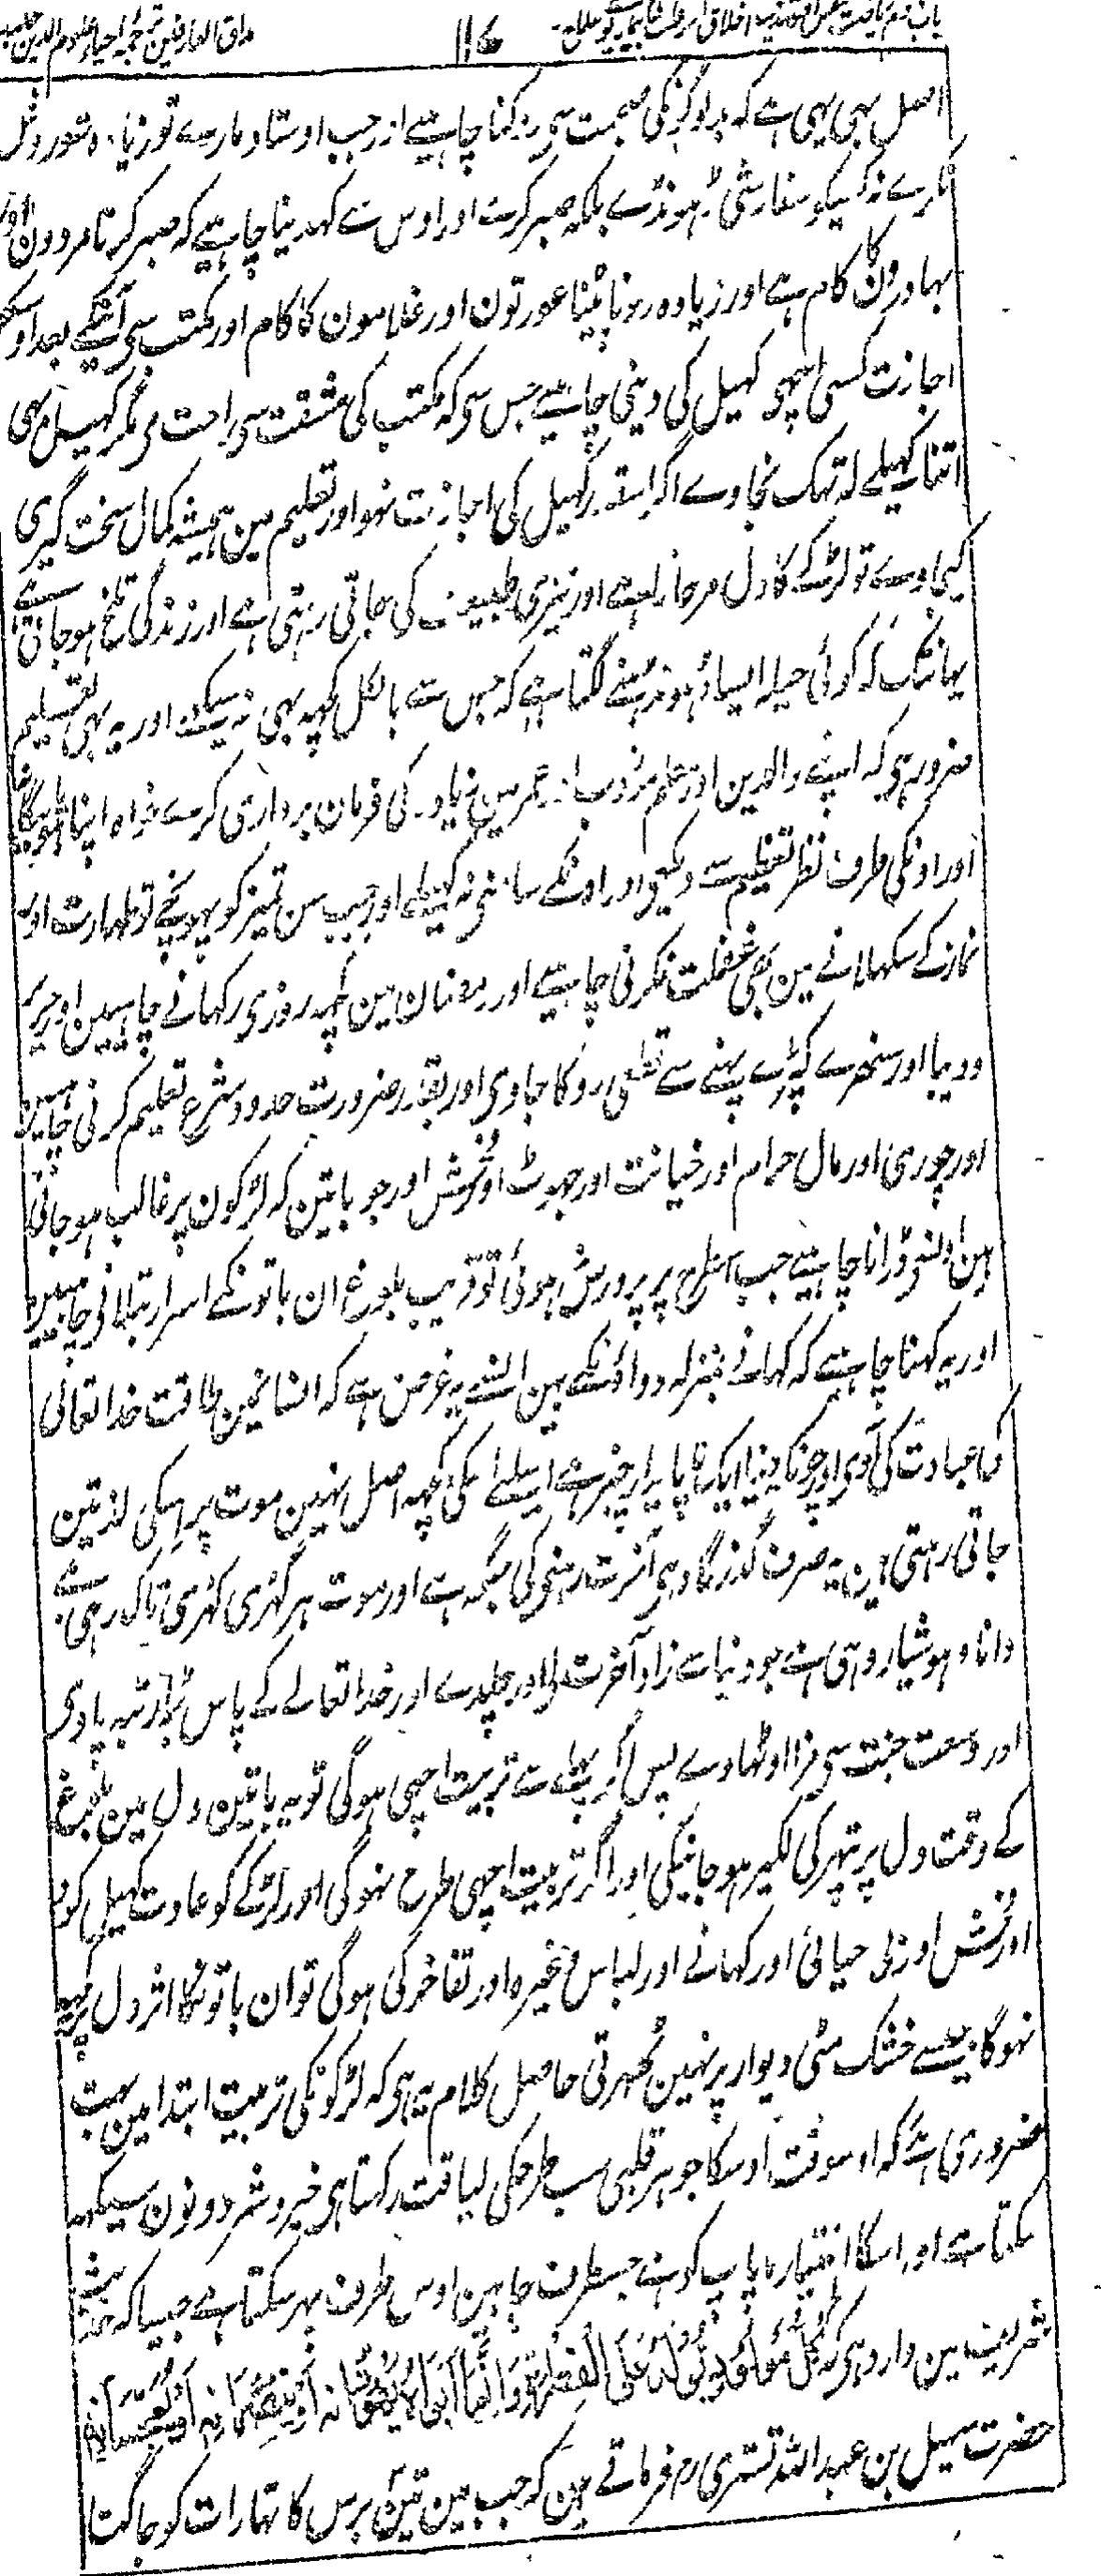 مذاق العارفین ترجمہ احیاء علوم الدین جلد
۱۱۷
اصل یہی ہے کہ لڑکونکی صحبت سی چاہیے اور جب اوستاد مارے تو زیادہ شور و غل
نکرے نہ کسیکو سفارشی ڈہونڈے بلکہ صبر کرے اور اوس سے کہدینا چاہیے کہ صبر کرنا مردون اور
بہادرون کا کام ہے اور زیادہ رونا پیٹنا عورتون اور غلامون کا کام اور مکتب سی آنیکے بعد اوسکو
اجازت کسی اچہی کہیل کی دینی چاہیے جس سی کہ مکتب کی مشقت سی راحت ہی مگر کہیل بہی
اتنا نہ کہیلے کہ تہک نجاوے اگر اسقدر کہیل کی اجازت نہو اور تعلیم مین ہمیشہ کمال سخت گیری
کیجاوے تو لڑکے کا دل مرجاتا ہے اور تیزی طبیعت کی جاتی رہتی ہے اور زندگی تلخ ہوجاتی ہے
یہانتک کہ کوئی حیلہ ایسا ڈہونڈہنے لگتا ہے کہ جس سے بالکل کچہہ بہی نہ سیکہے اور یہ بہی تعلیم
ضرور ہی کہ اپنے والدین اور معلم مؤدب اور عمر مین زیادہ کی فرمان برداری کرے خواہ اپنا ہو یا بیگانہ
اور اونکی طرف نظر تعظیم سے دیکہی اور اونکے سامنی نہ کہیلے اور جب سن تمیز کو پہونچے تو طہارت اور
نماز کے سکہلانے مین بہی غفلت نکرنی چاہیے اور رمضان مین کچہہ روزی رکہانے چاہیین اور حریر
و دیبا اور سنہرے کپڑے پہننے سے قطعی روکا جاوی اور بقدر ضرورت حدود شرع تعلیم کرنی چاہییں
اور چوری اور مال حرام اور خیانت اور جہوٹ اور فحش اور جو باتین کہ لڑکون پر غالب ہوجاتی
ہین اونسی ڈرانا چاہیے جب اسطرح پر پرورش ہوئی تو قریب بلوغ ان باتونکے اسرار بتلانی چاہییں
اور یہ کہنا چاہیے کہ کہانے بمنزلہ دوا کے ہین انسے یہ غرض ہے کہ انسانمین طاقت خدا تعالی
کی عبادت کی آوی اور چونکہ دنیا ایک ناپایدار چیز ہے اسلیے اسکی کچہہ اصل نہین موت پر اسکی لذتین
جاتی رہتی ہین یہ صرف گذرگاہ ہی آخرت رہنی کی جگہہ ہے اور موت ہر گہڑی کہڑی تاک رہی ہے
دانا و ہوشیار وہی ہے جو دنیا سے زاد آخرت لی اور چلدے اور خدا تعالے کے پاس بڑا رتبہ پاوی
اور وسعت جنت سی مزا اوٹہاوے پس اگر پہلے سے تربیت اچہی ہوگی تو یہ باتین دل مین بلوغ
کے وقت دل پر پتہر کی لکیر ہوجائینگی اور اگر تربیت اچہی طرح نہوگی اور لڑکے کو عادت کہیل کود
اور فحش اور بی حیائی اور کہانے اور لباس وغیرہ اور تفاخر کی ہوگی تو ان باتونکا اثر دل پر کچہہ
نہوگا جیسے خشک مٹی دیوار پر نہین ٹھہرتی حاصل کلام یہ ہی کہ لڑکونکی تربیت ابتدا مین بہت
ضروری ہے کہ اوسوقت اوسکا جوہر قلبی سب طرحکی لیاقت رکہتا ہی خیر و شر دونون سیکہہ
سکتا ہے اور اسکا اختیار ما باپ کو ہے جسطرف چاہین اوس طرف پہر سکتا ہے جیسا کہ حدیث
شریف مین وارد ہی کہ كُلُّ مَوْلُوْدٍ يُوْلَدُ عَلَى الْفِطْرَةِ وَاِنَّمَا اَبَوَاهُ يُهَوِّدَانِهِ اَوْ يُنَصِّرَانِهِ اَوْ يُمَجِّسَانِهِ
حضرت سہیل بن عبداللہ تستری رح فرماتے ہین کہ جب مین تین برس کا تہا رات کو جاگتا